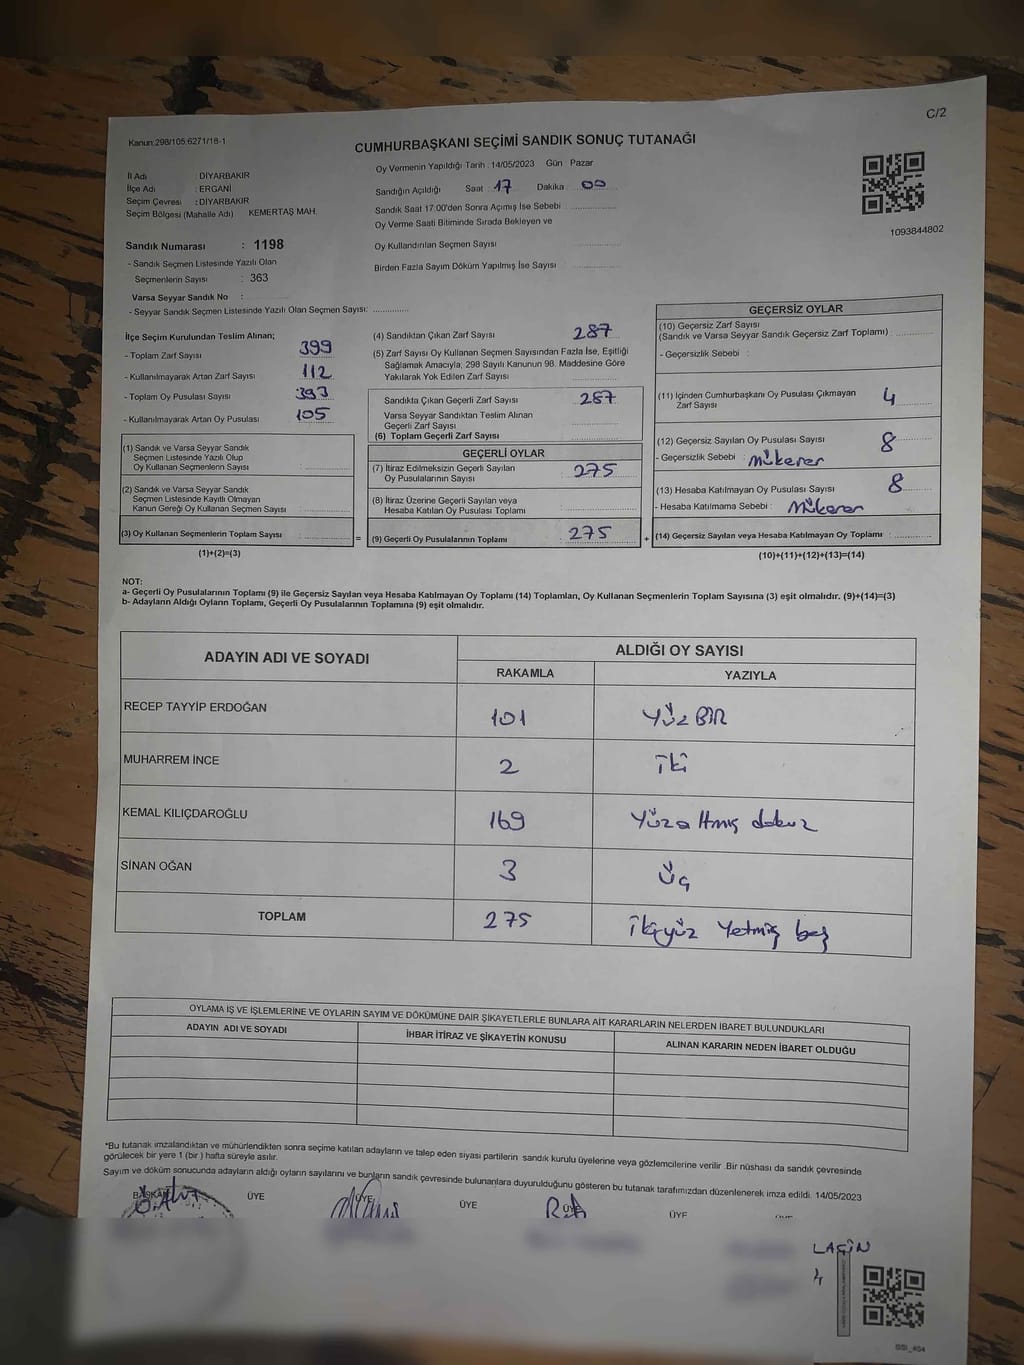 C/2
Kanun:298/105;6271/18-1
CUMHURBAŞKANI SEÇİMİ SANDIK SONUÇ TUTANAĞI
Oy Vermenin Yapıldığı Tarih :14/05/2023 Gün Pazar
İl Adı : DİYARBAKIR
İlçe Adı : ERGANİ
Seçim Çevresi : DİYARBAKIR
Seçim Bölgesi (Mahalle Adı) KEMERTAŞ MAH.
Sandığın Açıldığı Saat : 17 Dakika 00
Sandık Saat 17:00'den Sonra Açımış İse Sebebi
Oy Verme Saati Bitiminde Sırada Bekleyen ve
Oy Kullandırılan Seçmen Sayısı
Birden Fazla Sayım Döküm Yapılmış İse Sayısı
1093844802
Sandık Numarası : 1198
- Sandık Seçmen Listesinde Yazılı Olan
Seçmenlerin Sayısı : 363
Varsa Seyyar Sandık No :
- Seyyar Sandık Seçmen Listesinde Yazılı Olan Seçmen Sayısı:
İlçe Seçim Kurulundan Teslim Alınan;
- Toplam Zarf Sayısı 399
- Kullanılmayarak Artan Zarf Sayısı 112
- Toplam Oy Pusulası Sayısı 393
- Kullanılmayarak Artan Oy Pusulası 105
(1) Sandık ve Varsa Seyyar Sandık
Seçmen Listesinde Yazılı Olup
Oy Kullanan Seçmenlerin Sayısı :
(2) Sandık ve Varsa Seyyar Sandık
Seçmen Listesinde Kayıtlı Olmayan
Kanun Gereği Oy Kullanan Seçmen Sayısı :
(3) Oy Kullanan Seçmenlerin Toplam Sayısı :
(1)+(2)=(3)
=
(4) Sandıktan Çıkan Zarf Sayısı 287
(5) Zarf Sayısı Oy Kullanan Seçmen Sayısından Fazla İse, Eşitliği
Sağlamak Amacıyla, 298 Sayılı Kanunun 98. Maddesine Göre
Yakılarak Yok Edilen Zarf Sayısı
Sandıkta Çıkan Geçerli Zarf Sayısı 287
Varsa Seyyar Sandıktan Teslim Alınan
Geçerli Zarf Sayısı
(6) Toplam Geçerli Zarf Sayısı
GEÇERLİ OYLAR
(7) İtiraz Edilmeksizin Geçerli Sayılan
Oy Pusulalarının Sayısı : 275
(8) İtiraz Üzerine Geçerli Sayılan veya
Hesaba Katılan Oy Pusulası Toplamı :
(9) Geçerli Oy Pusulalarının Toplamı : 275
+
GEÇERSİZ OYLAR
(10) Geçersiz Zarf Sayısı
(Sandık ve Varsa Seyyar Sandık Geçersiz Zarf Toplamı) :
- Geçersizlik Sebebi :
(11) İçinden Cumhurbaşkanı Oy Pusulası Çıkmayan
Zarf Sayısı : 4
(12) Geçersiz Sayılan Oy Pusulası Sayısı : 8
- Geçersizlik Sebebi : mükerer
(13) Hesaba Katılmayan Oy Pusulası Sayısı : 8
- Hesaba Katılmama Sebebi : Mükerer
(14) Geçersiz Sayılan veya Hesaba Katılmayan Oy Toplamı :
(10)+(11)+(12)+(13)=(14)
NOT:
a- Geçerli Oy Pusulalarının Toplamı (9) ile Geçersiz Sayılan veya Hesaba Katılmayan Oy Toplamı (14) Toplamları, Oy Kullanan Seçmenlerin Toplam Sayısına (3) eşit olmalıdır. (9)+(14)=(3)
b- Adayların Aldığı Oyların Toplamı, Geçerli Oy Pusulalarının Toplamına (9) eşit olmalıdır.
ADAYIN ADI VE SOYADI
ALDIĞI OY SAYISI
RAKAMLA YAZIYLA
RECEP TAYYİP ERDOĞAN 101 YÜZ BİR
MUHARREM İNCE 2 İki
KEMAL KILIÇDAROĞLU 169 Yüzaltmış dokuz
SİNAN OĞAN 3 Üç
TOPLAM 275 İkiyüz Yetmiş beş
OYLAMA İŞ VE İŞLEMLERİNE VE OYLARIN SAYIM VE DÖKÜMÜNE DAİR ŞİKAYETLERLE BUNLARA AİT KARARLARIN NELERDEN İBARET BULUNDUKLARI
ADAYIN ADI VE SOYADI İHBAR İTİRAZ VE ŞİKAYETİN KONUSU ALINAN KARARIN NEDEN İBARET OLDUĞU
*Bu tutanak imzalandıktan ve mühürlendikten sonra seçime katılan adayların ve talep eden siyasi partilerin sandık kurulu üyelerine veya gözlemcilerine verilir .Bir nüshası da sandık çevresinde
görülecek bir yere 1 (bir ) hafta süreyle asılır.
Sayım ve döküm sonucunda adayların aldığı oyların sayılarını ve bunların sandık çevresinde bulunanlara duyurulduğunu gösteren bu tutanak tarafımızdan düzenlenerek imza edildi. 14/05/2023
BAŞKAN ÜYE ÜYE ÜYE ÜYE ÜYE
LAÇİN